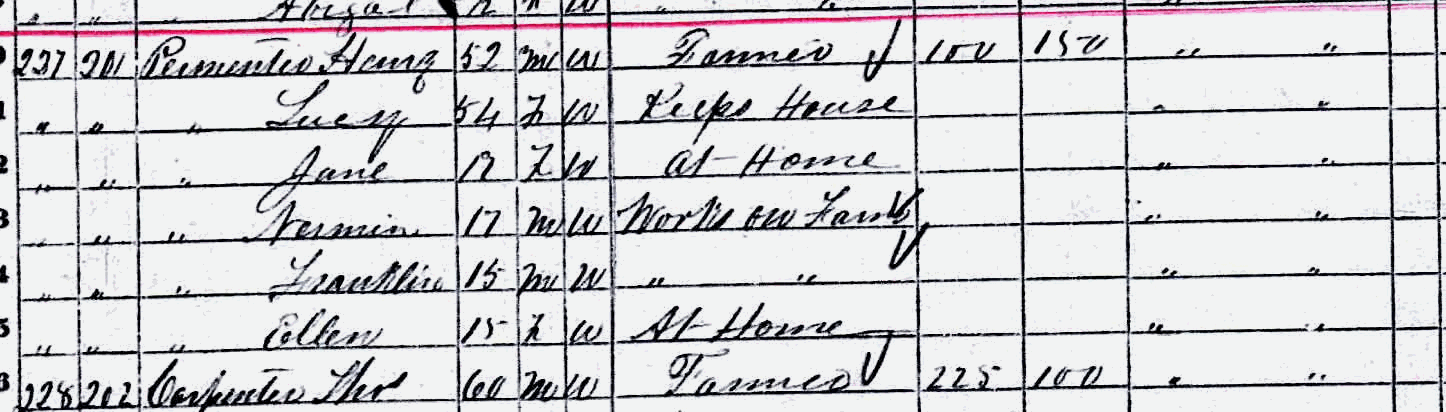 Abigal 12 F W " "
237 201 Permenter Henry 52 M W Farmer 100 150 " "
" " " Lucy 54 F W Keeps House " "
" " " Jane 19 F W At Home " "
" " " 17 M W Works on Farm " "
" " " Franklin 15 M W " " " "
" " " Ellen 15 F W At Home " "
228 202 Carpenter Thos 60 M W Farmer 225 100 " "